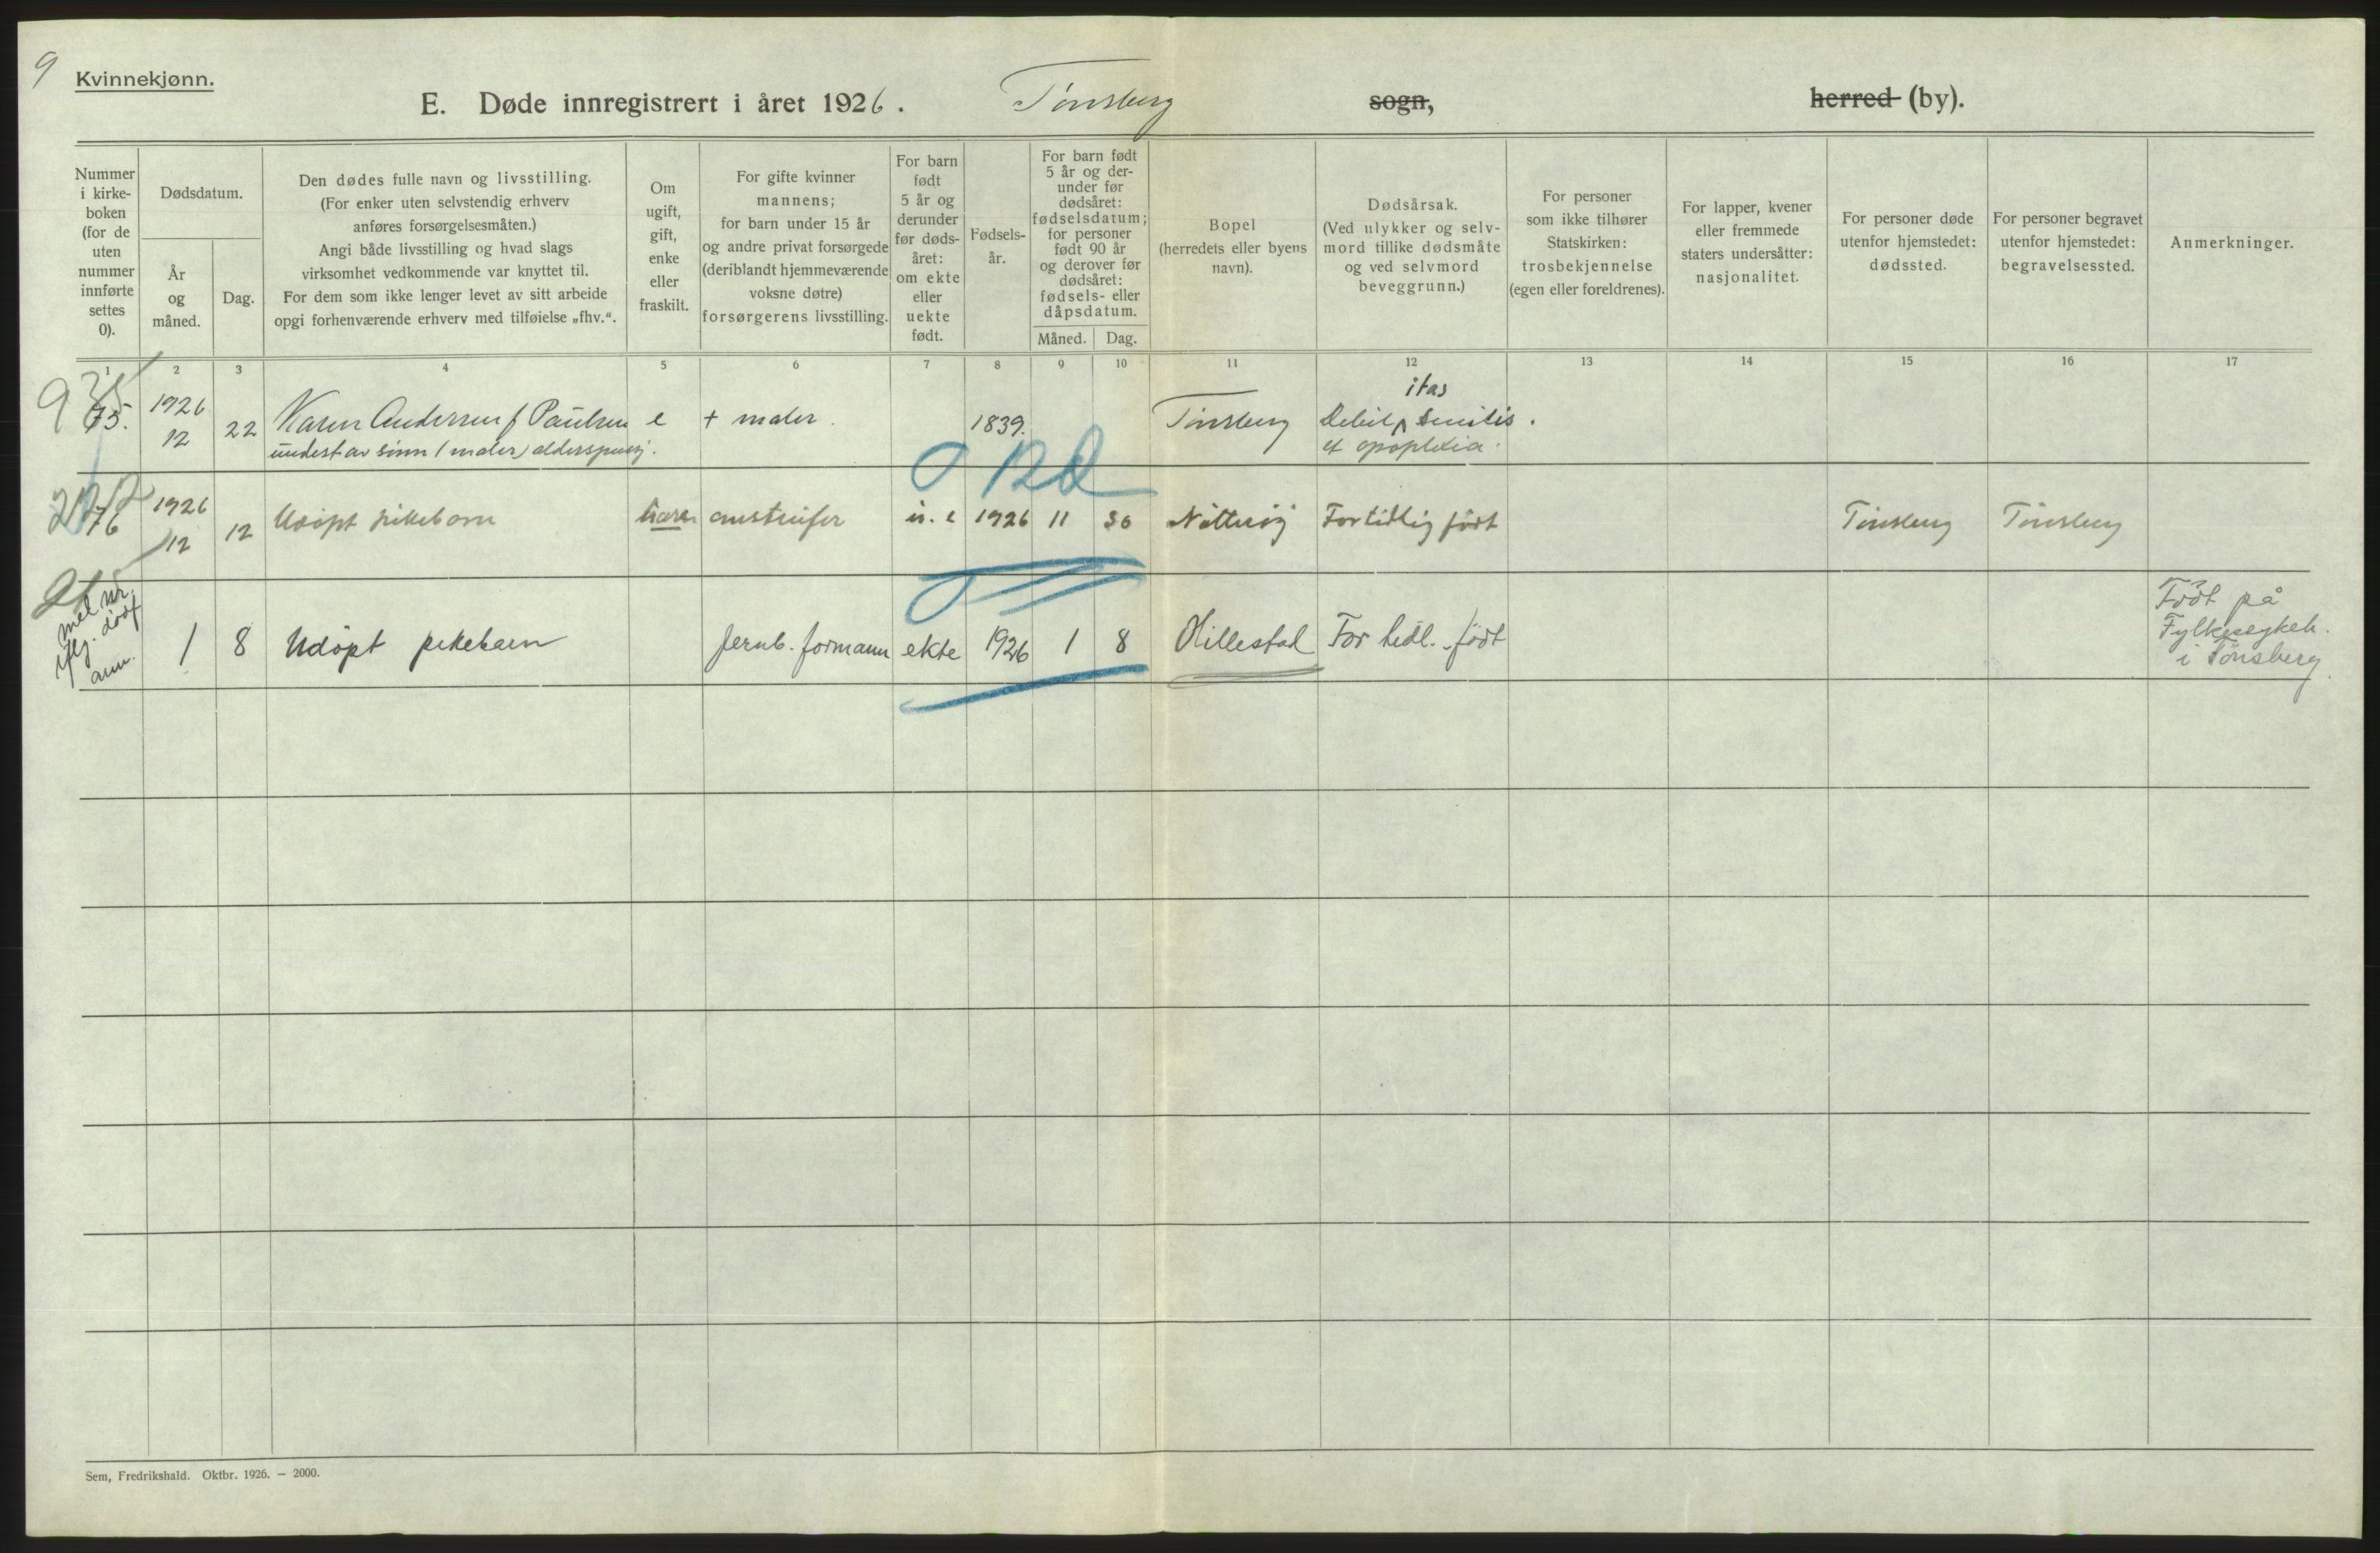 9
Kvinnekjønn.
E. Døde innregistrert i året 1926. Tønsberg sogn, herred (by).
Nummer i kirke-boken (for de uten nummer innførte settes 0).
Dødsdatum.
År og måned.
Dag.
Den dødes fulle navn og livsstilling.
(For enker uten selvstendig erhverv
anføres forsørgelsesmåten.)
Angi både livsstilling og hvad slags
virksomhet vedkommende var knyttet til.
For dem som ikke lenger levet av sitt arbeide
opgi forhenværende erhverv med tilføielse „fhv.“.
Om ugift, gift, enke eller fraskilt.
For gifte kvinner
mannens;
for barn under 15 år
og andre privat forsørgede
(deriblandt hjemmeværende
voksne døtre)
forsørgerens livsstilling.
For barn født 5 år og derunder før døds-året: om ekte eller uekte født.
Fødsels-år.
For barn født
5 år og der-
under før
dødsåret:
fødselsdatum;
for personer
født 90 år
og derover før
dødsåret:
fødsels- eller
dåpsdatum.
Måned. Dag.
Bopel
(herredets eller byens
navn).
Dødsårsak.
(Ved ulykker og selv-
mord tillike dødsmåte
og ved selvmord
beveggrunn.)
For personer
som ikke tilhører
Statskirken:
trosbekjennelse
(egen eller foreldrenes).
For lapper, kvener
eller fremmede
staters undersåtter:
nasjonalitet.
For personer døde
utenfor hjemstedet:
dødssted.
For personer begravet
utenfor hjemstedet:
begravelsessted.
Anmerkninger.
1 2 3 4 5 6 7 8 9 10 11 12 13 14 15 16 17
75. 1926 12 22 Karen Andersen f Paulsen e + maler. 1839. Tønsberg Debil itas senilis.
underst av sønn (maler) alderspensj. et apoplexia.
76 1926 12 12 Udøpt pikebarn barn u. e 1926 11 30 Nøtterøy For tidlig født Tønsberg Tønsberg
1 8 Udöpt pikebarn Jernb. formann ekte 1926 1 8 Hillestad For tidl. født
Født på
Fylkessykeh.
i Tønsberg.
Sem, Fredrikshald. Oktbr. 1926. – 2000.